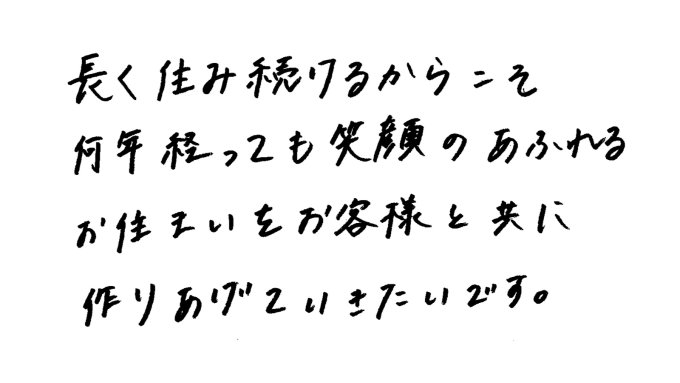 長く住み続けるからこそ
何年経っても笑顔のあふれる
お住まいをお客様と共に
作りあげていきたいです。